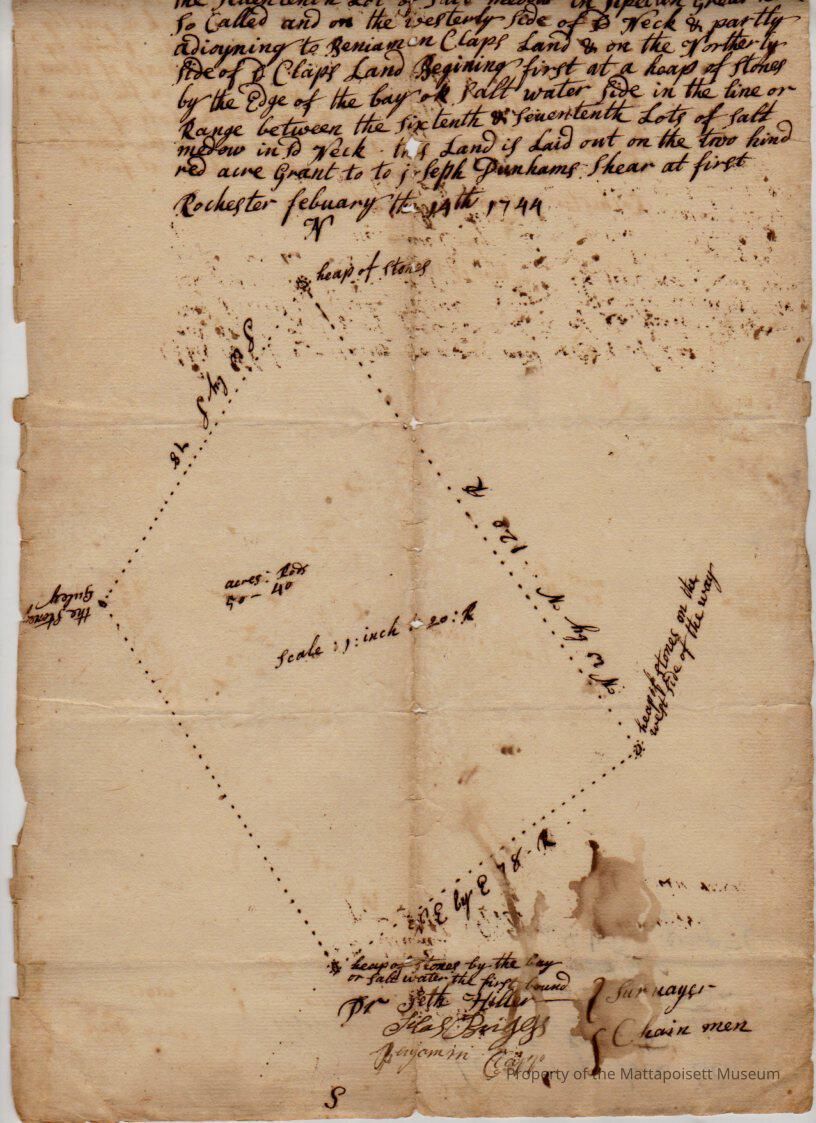 the Sevententh Lot of Salt medow in Sipecan Great
so Called and on the westerly side of sd Neck & partly
adioyning to Beniamen Claps Land & on the Northerly
side of sd Claps Land Begining first at a heap of stones
by the Edge of the bay or Salt water side in the line or
Range between the sixtenth & sevententh Lots of salt
medow in sd Neck this Land is Laid out on the two hind
red acre Grant to to joseph Dunhams Shear at first
Rochester febuary the 14th 1744
N
heap of stones
78
the stone
acres: Rods
50 - 40
Scale : 1: inch : 20: R
N w by N : 128 R
heap of stones on the
west side of the way
E by E 78 R
heap of stones by the bay
or salt water the first bound
Pr Seth Hiller Survayer
Silas Briggs
Chain men
Benjamin Clapp
S
Property of the Mattapoisett Museum